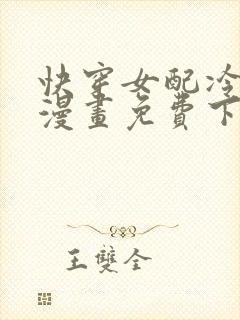 快穿女配冷
漫畫免費下
王雙全